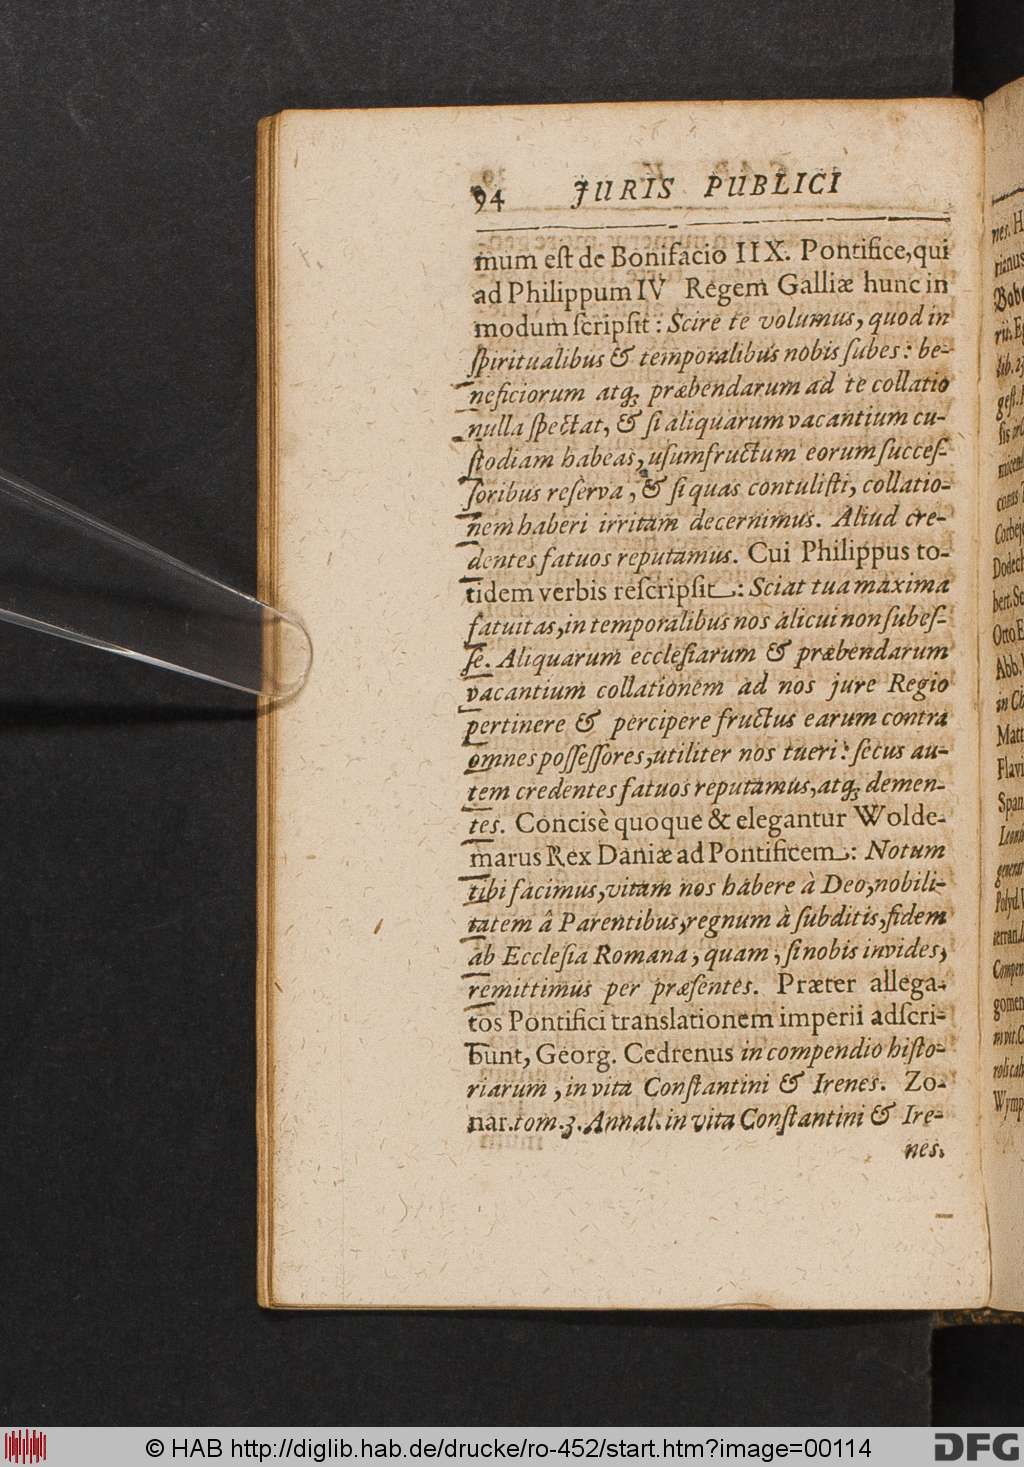 94 JURIS PUBLICI
mum eſt de Bonifacio IIX. Pontifice, qui
ad Philippum IV Regem Galliæ hunc in
modum ſcripſit: Scire te volumus, quod in
ſpiritualibus & temporalibus nobis ſubes: be-
neficiorum atq; præbendarum ad te collatio
nulla ſpectat, & ſi aliquarum vacantium cu-
ſtodiam habeas, uſumfructum eorum ſucceſ-
ſoribus reſerva, & ſi quas contuliſti, collatio-
nem haberi irritam decernimus. Aliud cre-
dentes fatuos reputamus. Cui Philippus to-
tidem verbis reſcripſit: Sciat tua maxima
fatuitas, in temporalibus nos alicui non ſubeſ-
ſe. Aliquarum eccleſiarum & præbendarum
vacantium collationem ad nos jure Regio
pertinere & percipere fructus earum contra
omnes poſſeſſores, utiliter nos tueri: ſecus au-
tem credentes fatuos reputamus, atq; demen-
tes. Concisè quoque & elegantur Wolde-
marus Rex Daniæ ad Pontificem: Notum
tibi facimus, vitam nos habere à Deo, nobili-
tatem â Parentibus, regnum à ſubditis, fidem
ab Eccleſia Romana, quam, ſi nobis invides,
remittimus per præſentes. Præter allega-
tos Pontifici translationem imperii adſcri-
bunt, Georg. Cedrenus in compendio hiſto-
riarum, in vita Conſtantini & Irenes. Zo-
nar. tom. 3. Annal. in vita Conſtantini & Ire-
nes.
nes. H
rianus
Babe
lib. 23
geſt.
Corbeje
Dodech
bert. Sc
Otto. E
Abb.
in Ch
Matt
Flavi
Span
Leonic
generat
Polyd. V
Compen
gomen
in vit. C
Wymp
© HAB http://diglib.hab.de/drucke/ro-452/start.htm?image=00114
DFG